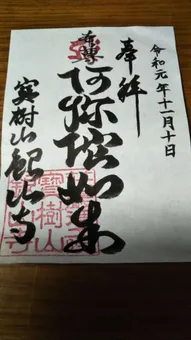 令和元年十一月十日
奉拝
本尊
阿弥陀如来
寳樹山
寺
寶樹山